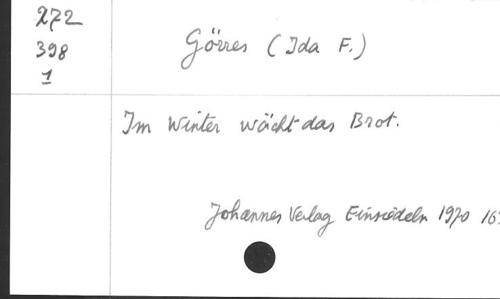 272
398
1
Görres (Ida F.)
Im Winter wächt das Brot.
Johannes Verlag Einsiedeln 1970